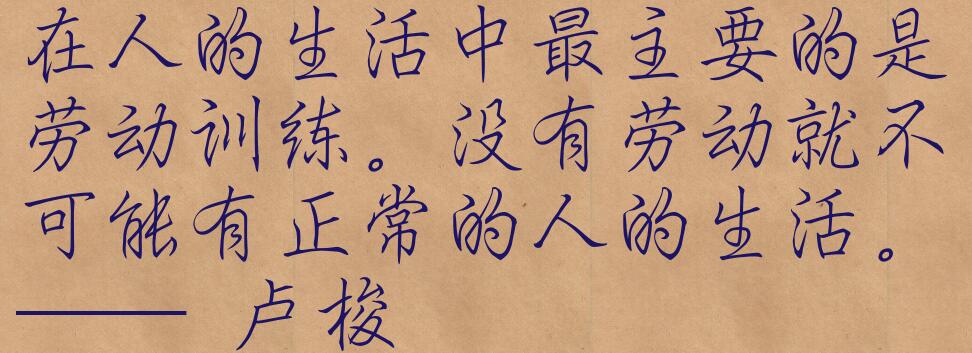 在人的生活中最主要的是
劳动训练。没有劳动就不
可能有正常的人的生活。
——卢梭